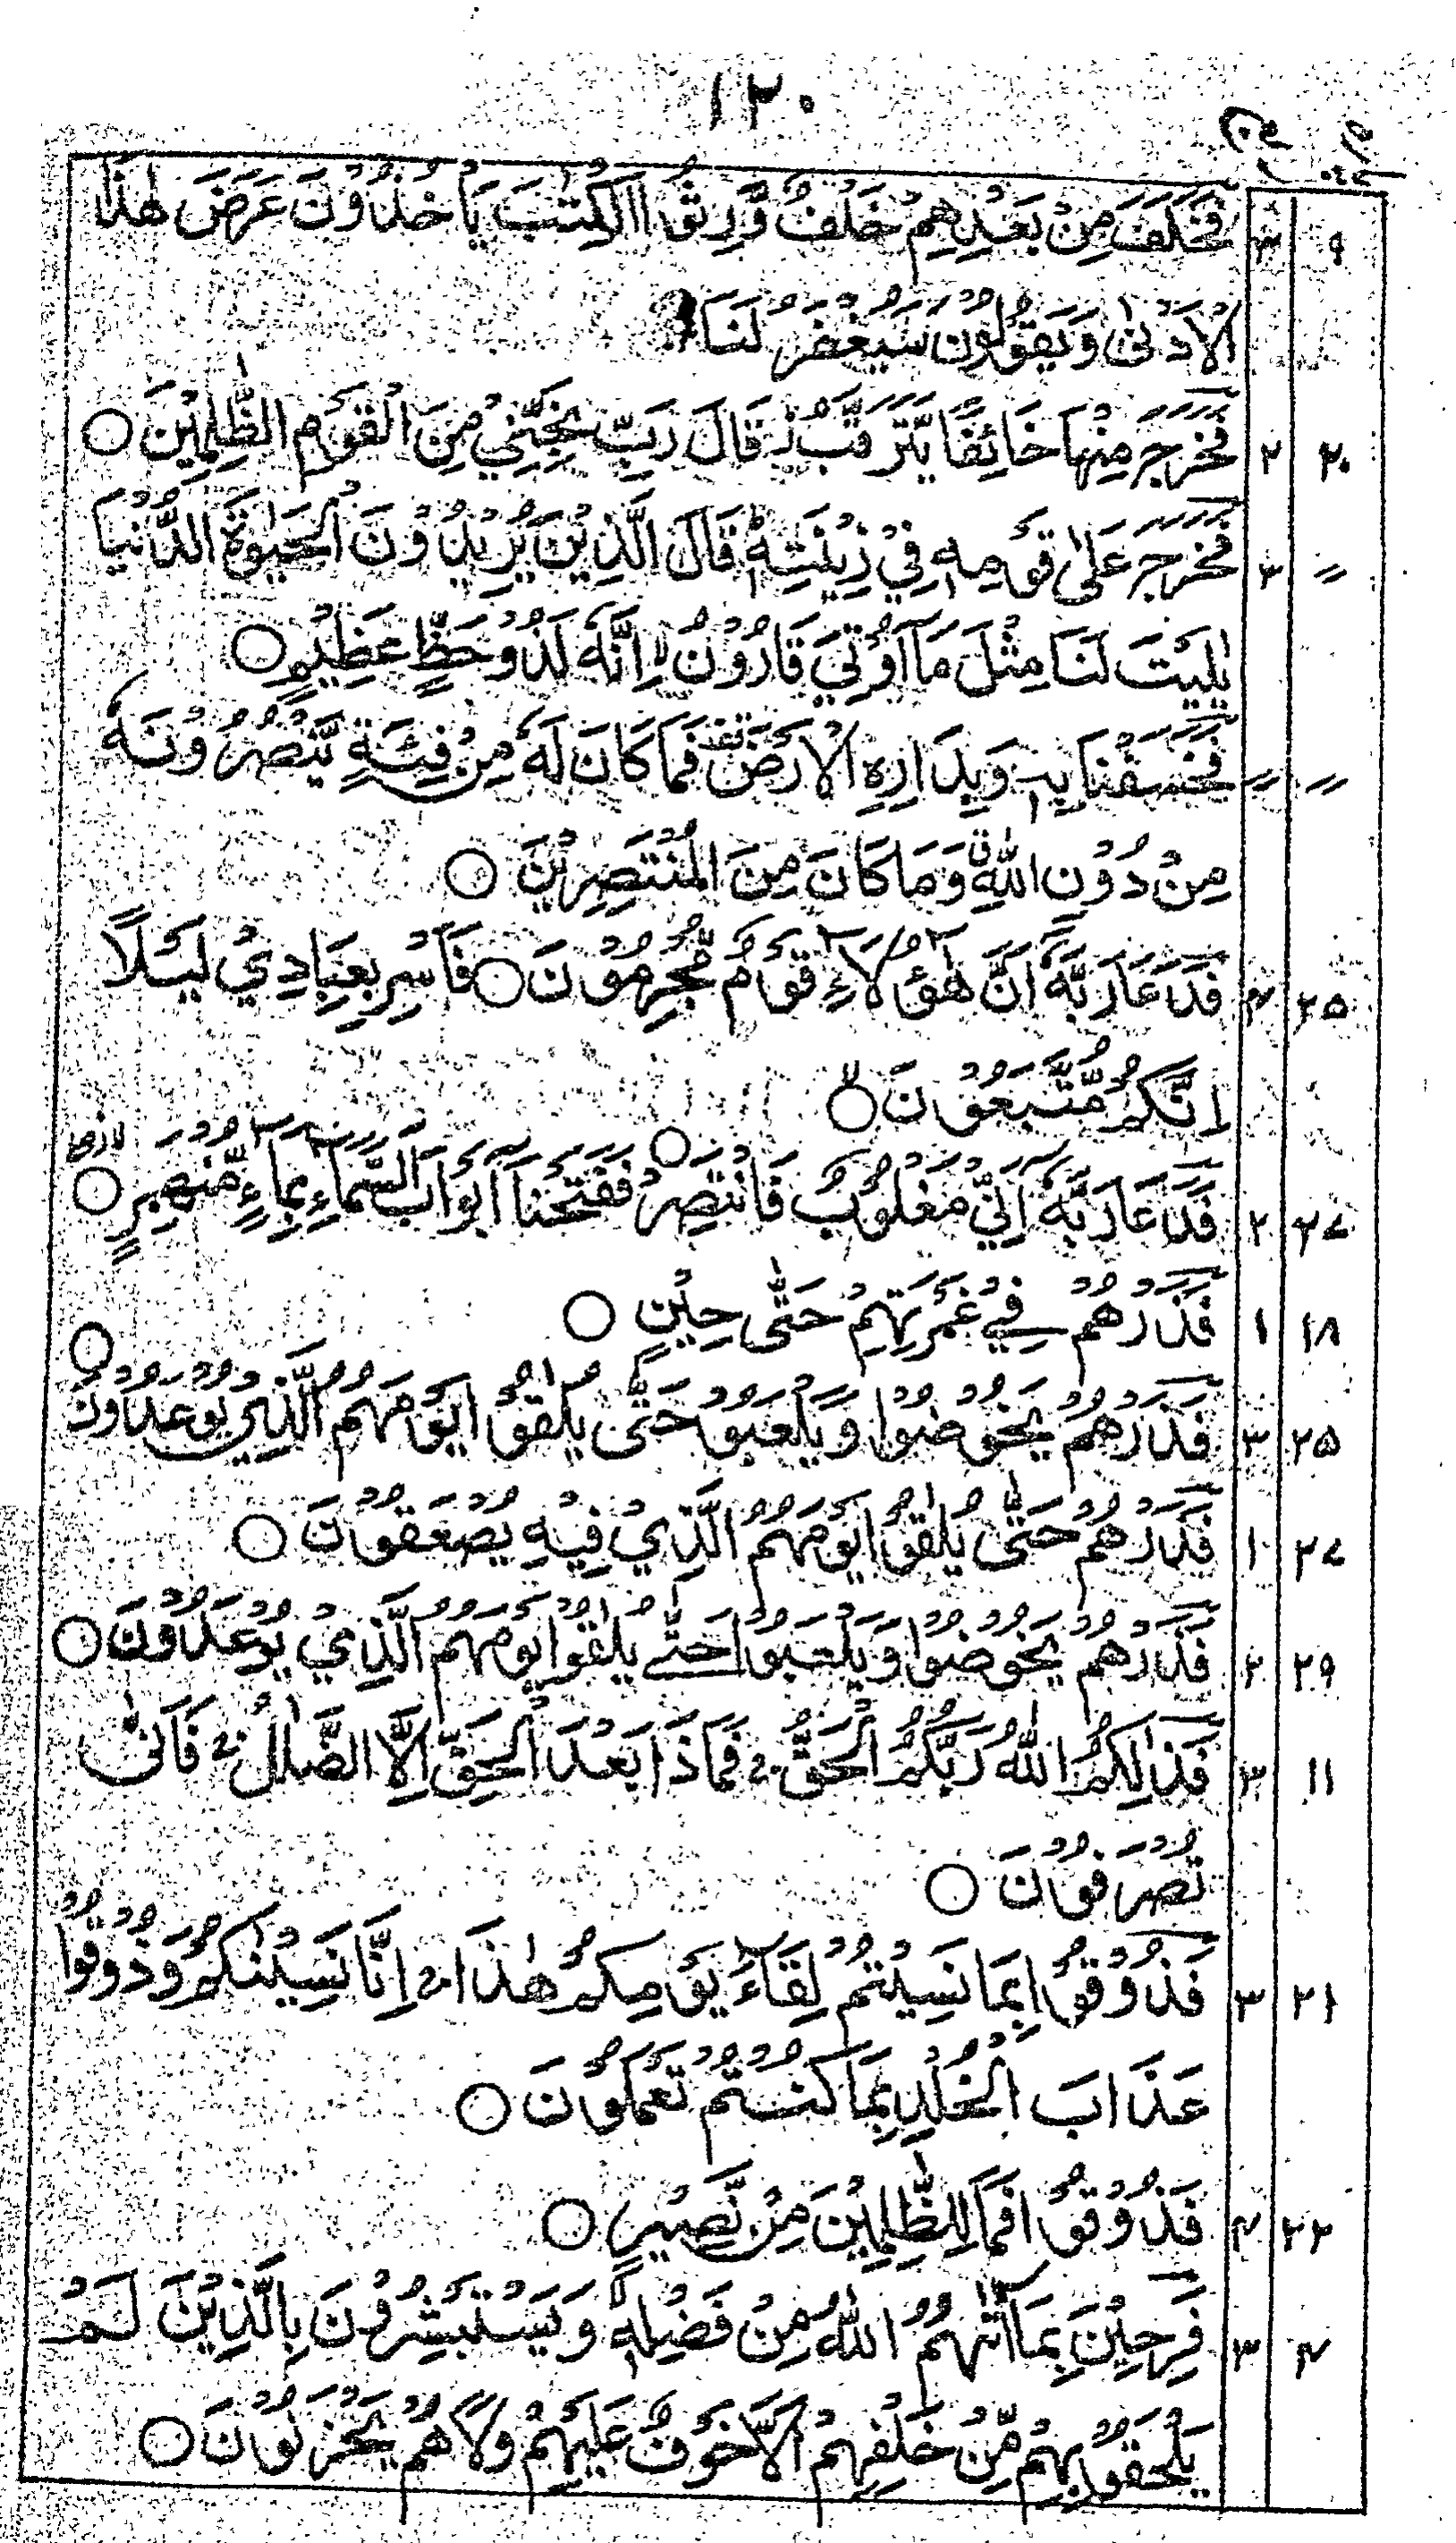 ۱۲۰
۹ ۳ فَخَلَفَ مِنْ بَعْدِهِمْ خَلْفٌ وَّرِثُوا الْكِتٰبَ يَأْخُذُوْنَ عَرَضَ هٰذَا
الْاَدْنٰى وَيَقُوْلُوْنَ سَيُغْفَرُ لَنَا
۲۰ ۲ فَخَرَجَ مِنْهَا خَائِفًا يَّتَرَقَّبُ ز قَالَ رَبِّ نَجِّنِيْ مِنَ الْقَوْمِ الظّٰلِمِيْنَ ○
〃 ۳ فَخَرَجَ عَلٰى قَوْمِهٖ فِيْ زِيْنَتِهٖ ط قَالَ الَّذِيْنَ يُرِيْدُوْنَ الْحَيٰوةَ الدُّنْيَا
يٰلَيْتَ لَنَا مِثْلَ مَآ اُوْتِيَ قَارُوْنُ لا اِنَّهٗ لَذُوْ حَظٍّ عَظِيْمٍ ○
〃 〃 فَخَسَفْنَا بِهٖ وَبِدَارِهِ الْاَرْضَ قف فَمَا كَانَ لَهٗ مِنْ فِئَةٍ يَّنْصُرُوْنَهٗ
مِنْ دُوْنِ اللّٰهِ ق وَمَا كَانَ مِنَ الْمُنْتَصِرِيْنَ ○
۲۵ ۴ فَدَعَا رَبَّهٗٓ اَنَّ هٰٓؤُلَآءِ قَوْمٌ مُّجْرِمُوْنَ ○ فَاَسْرِ بِعِبَادِيْ لَيْلًا
اِنَّكُمْ مُّتَّبَعُوْنَ ○ لا
۲۷ ۲ فَدَعَا رَبَّهٗٓ اَنِّيْ مَغْلُوْبٌ فَانْتَصِرْ ○ فَفَتَحْنَآ اَبْوَابَ السَّمَآءِ بِمَآءٍ مُّنْهَمِرٍ ○
۱۸ ۱ فَذَرْهُمْ فِيْ غَمْرَتِهِمْ حَتّٰى حِيْنٍ ○
۲۵ ۳ فَذَرْهُمْ يَخُوْضُوْا وَيَلْعَبُوْا حَتّٰى يُلٰقُوْا يَوْمَهُمُ الَّذِيْ يُوْعَدُوْنَ ○
۲۷ ۱ فَذَرْهُمْ حَتّٰى يُلٰقُوْا يَوْمَهُمُ الَّذِيْ فِيْهِ يُصْعَقُوْنَ ○
۲۹ ۲ فَذَرْهُمْ يَخُوْضُوْا وَيَلْعَبُوْا حَتّٰى يُلٰقُوْا يَوْمَهُمُ الَّذِيْ يُوْعَدُوْنَ ○
۱۱ ۳ فَذٰلِكُمُ اللّٰهُ رَبُّكُمُ الْحَقُّ ج فَمَاذَا بَعْدَ الْحَقِّ اِلَّا الضَّلٰلُ ج فَاَنّٰى
تُصْرَفُوْنَ ○
۲۱ ۳ فَذُوْقُوْا بِمَا نَسِيْتُمْ لِقَآءَ يَوْمِكُمْ هٰذَا ج اِنَّا نَسِيْنٰكُمْ وَذُوْقُوْا
عَذَابَ الْخُلْدِ بِمَا كُنْتُمْ تَعْمَلُوْنَ ○
۲۲ ۴ فَذُوْقُوْا فَمَا لِلظّٰلِمِيْنَ مِنْ نَّصِيْرٍ ○
۴ ۳ فَرِحِيْنَ بِمَآ اٰتٰهُمُ اللّٰهُ مِنْ فَضْلِهٖ لا وَيَسْتَبْشِرُوْنَ بِالَّذِيْنَ لَمْ
يَلْحَقُوْا بِهِمْ مِّنْ خَلْفِهِمْ اَلَّا خَوْفٌ عَلَيْهِمْ وَلَا هُمْ يَحْزَنُوْنَ ○